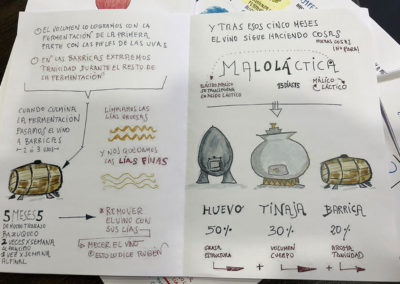 ① EL VOLUMEN LO LOGRAMOS CON LA
FERMENTACIÓN DE LA PRIMERA
PARTE CON LAS PIELES DE LAS UVAS
② EN LAS BARRICAS EXTRAEMOS
TANICIDAD DURANTE EL RESTO DE
LA FERMENTACIÓN
CUANDO CULMINA
LA FERMENTACIÓN
PASAMOS EL VINO
A BARRICAS
2 o 3 USOS
LIMPIAMOS LAS
LÍAS GRUESAS
Y NOS QUEDAMOS
LAS LÍAS FINAS
5 MESES
DE MUCHO TRABAJO
BAZUQUEO
2 VECES X SEMANA
AL PRINCIPIO
1 VEZ X SEMANA
AL FINAL
REMOVER
EL VINO CON
SUS LÍAS
MECER EL VINO
ESTO LO DICE RUBÉN
Y TRAS ESOS CINCO MESES
EL VINO SIGUE HACIENDO COSAS
MALOLÁCTICA
15 DÍAS
EL ÁCIDO MÁLICO
SE TRANSFORMA
EN ÁCIDO LÁCTICO
MÁLICO
LÁCTICO
HUEVO
TINAJA
BARRICA
50%
30%
20%
GRASA
ESTRUCTURA
VOLUMEN
CUERPO
AROMA
TANICIDAD
+
+